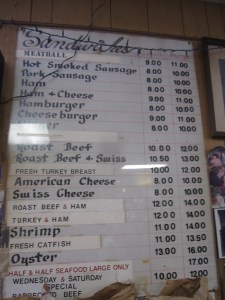 Sandwiches
MEATBALL 9.00 11.00
Hot Smoked Sausage 9.00 11.00
Pork Sausage
Ham
Ham & Cheese
Hamburger
Cheeseburger
Roast Beef 10.00 12.00
Roast Beef & Swiss 10.50 13.00
FRESH TURKEY BREAST 10.00 12.00
American Cheese 8.00 10.00
Swiss Cheese 8.00 10.00
ROAST BEEF & HAM 12.00 14.00
TURKEY & HAM 12.00 14.00
Shrimp 11.00 13.50
FRESH CATFISH 11.00 13.50
Oyster 13.00 16.00
HALF & HALF SEAFOOD LARGE ONLY 17.00
WEDNESDAY & SATURDAY
SPECIAL
BARBECUED BEEF 10.00 12.00